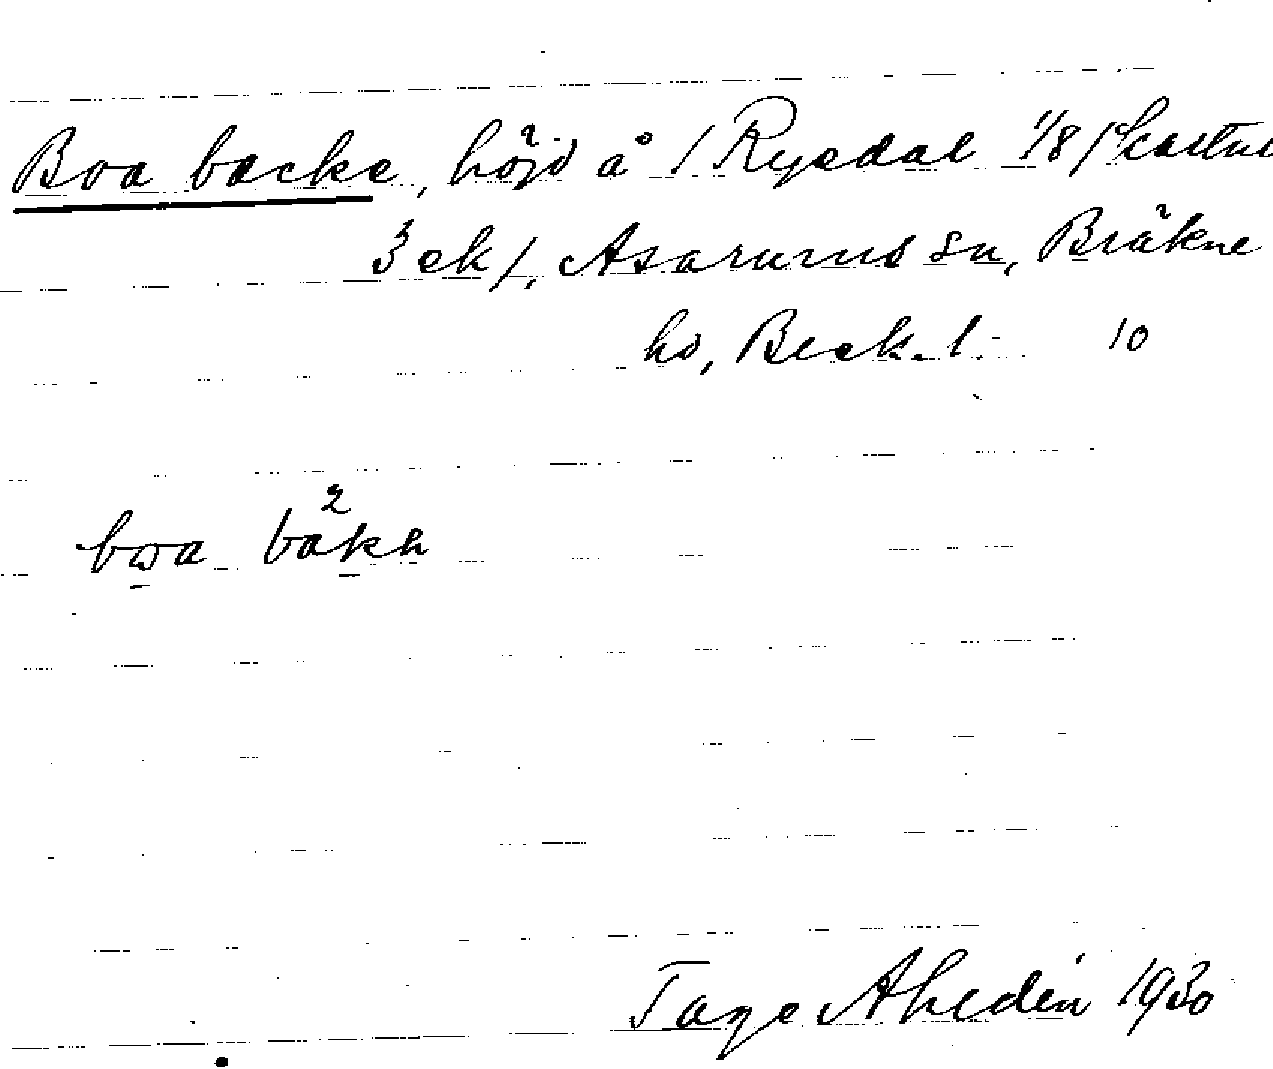 Boa backe, höjd å /Ryedal 1/8/
3 ek/, Asarums sn, Bräkne
hd, Blek. l. 10
boa båkə
Tage Ahldén 1930